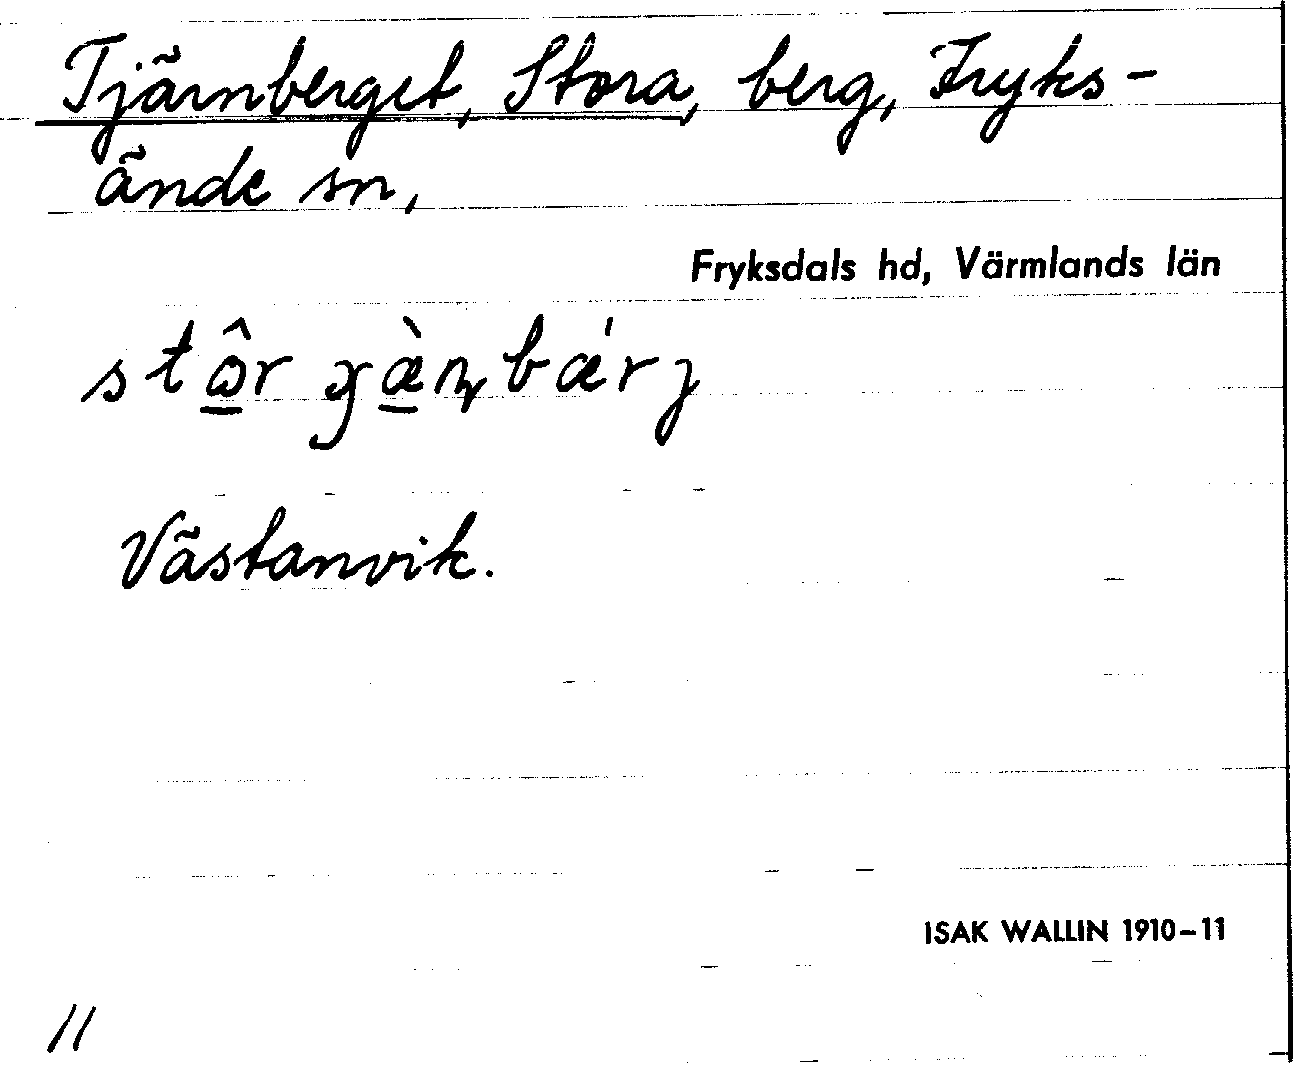 Tjärnberget, Stora, berg, Fryks-
ände sn,
Fryksdals hd, Värmlands län
Västanvik.
ISAK WALLIN 1910-11
11